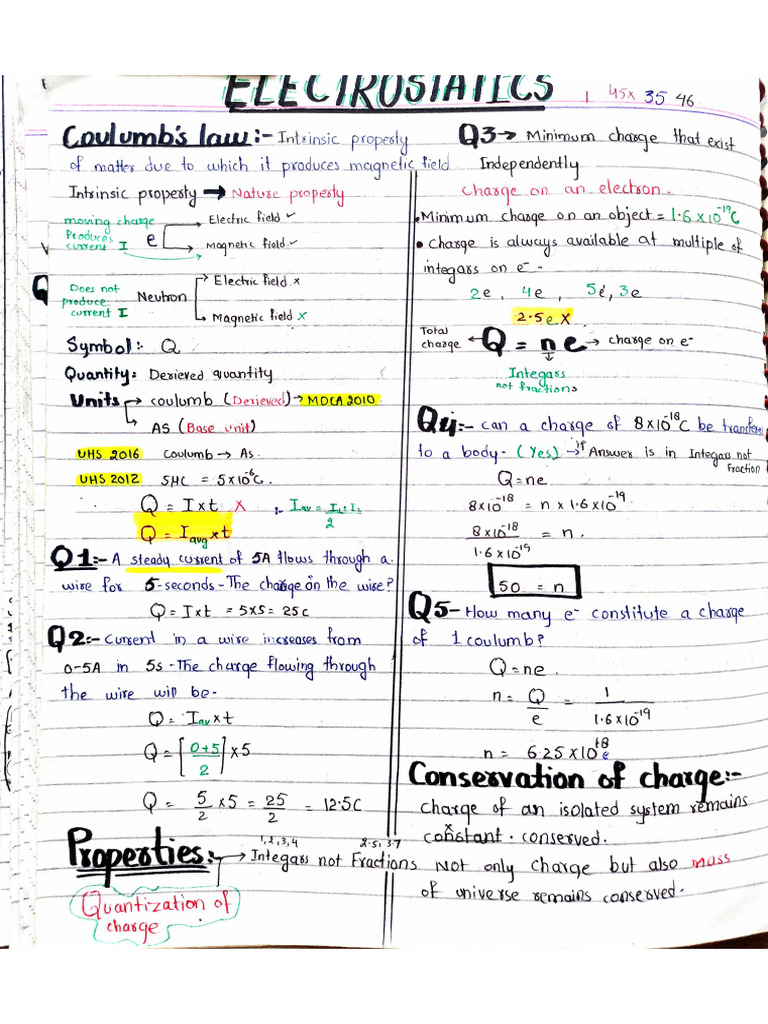 ELECTROSTATICS
1 45x 35 46
Coulumb's law:- Intrinsic property
of matter due to which it produces magnetic field
Intrinsic property → Nature property
moving charge
Produces
current I
e
Electric field ✓
Magnetic field ✓
Q
Does not
produce
current I
Neutron
Electric field x
Magnetic field x
Symbol:- Q
Quantity:- Derieved quantity
Units → coulumb (Derieved) → MDCA 2010
→ AS (Base unit)
UHS 2016 Coulumb → As.
UHS 2012 5µC = 5x10⁻⁶C.
Q = Ixt x ∴ Iav = I₁+I₂/2
Q = Iavg xt
Q1:- A steady current of 5A flows through a
wire for 5-seconds-The charge on the wire?
Q = Ixt = 5x5 = 25C
Q2:- Current in a wire increases from
0-5A in 5s-The charge flowing through
the wire will be-
Q = Iav xt
Q = [0+5/2] x5
Q = 5/2 x5 = 25/2 = 12.5C
Properties:- → Integars not Fractions
1,2,3,4 2.5, 3.7
Quantization of
charge
Q3→ Minimum charge that exist
Independently
Charge on an electron.
• Minimum charge on an object = 1.6x10⁻¹⁹C
• Charge is always available at multiple of
integars on e⁻-
2e, 4e, 5e, 3e
2.5e X
Total
charge ← Q = ne → charge on e⁻
↓
Integars
not fractions
Q4:- can a charge of 8x10⁻¹⁸C be transfered
to a body- (Yes) → if Answer is in Integars not
Fraction
Q=ne
8x10⁻¹⁸ = n x 1.6x10⁻¹⁹
8x10⁻¹⁸/1.6x10⁻¹⁹ = n.
50 = n
Q5- How many e⁻ constitute a charge
of 1 coulumb?
Q=ne.
n = Q/e = 1/1.6x10⁻¹⁹
n = 6.25x10⁺¹⁸ e
Conservation of charge:-
Charge of an isolated system remains
constant. conserved.
x
Not only charge but also mass
of universe remains conserved.